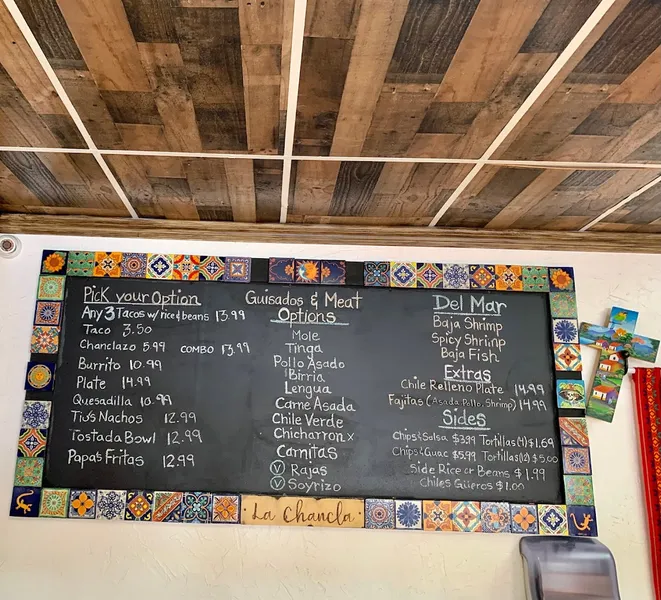 Pick your Option
Any 3 Tacos w/ rice & beans 13.99
Taco 3.50
Chanclazo 5.99 COMBO 13.99
Burrito 10.99
Plate 14.99
Quesadilla 10.99
Tio's Nachos 12.99
Tostada Bowl 12.99
Papas Fritas 12.99
Guisados & Meat
Options
Mole
Tinga
Pollo Asado
Birria
Lengua
Carne Asada
Chile Verde
Chicharron x
Carnitas
V Rajas
V Soyrizo
Del Mar
Baja Shrimp
Spicy Shrimp
Baja Fish
Extras
Chile Relleno Plate 14.99
Fajitas (Asada, Pollo, Shrimp) 14.99
Sides
Chips & Salsa $3.99 Tortillas (4) $1.69
Chips & Guac $5.99 Tortillas (12) $5.00
Side Rice or Beans $1.99
Chiles Güeros $1.00
La Chancla